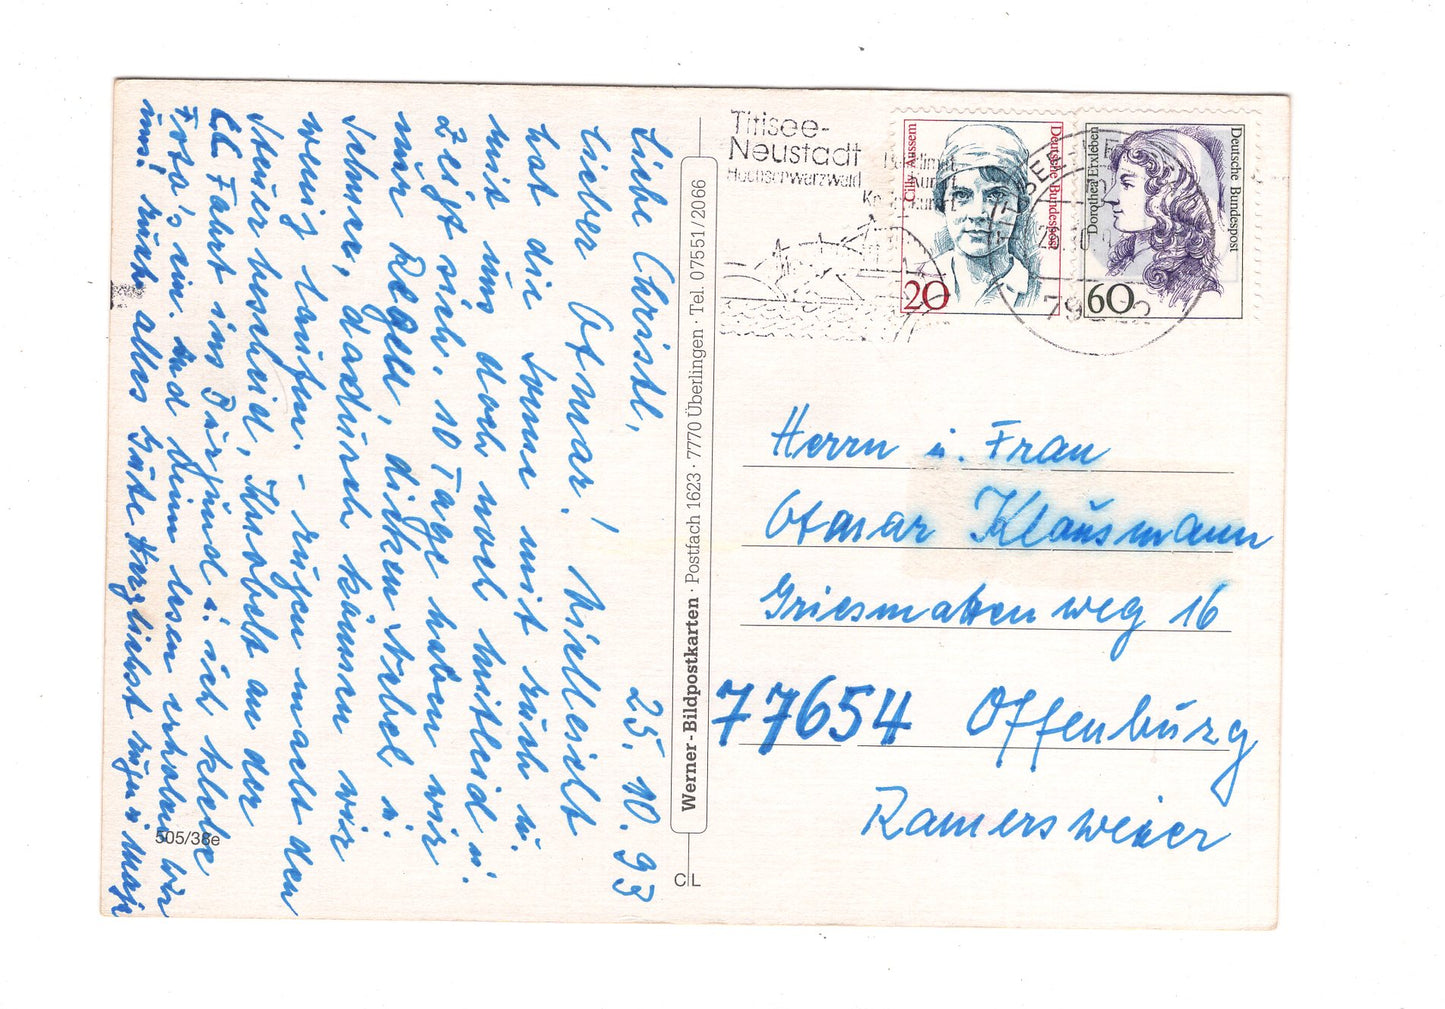 Titisee-
Neustadt
Hochschwarzwald
Cilly Aussem
Deutsche Bundespost
20
Dorothea Erxleben
Deutsche Bundespost
60
Werner-Bildpostkarten · Postfach 1623 · 7770 Überlingen · Tel. 07551/2066
C L
505/38e
Herrn u. Frau
Otmar Klausmann
Griesmattenweg 16
77654 Offenburg
Ramersweier
25.10.93
Liebe Christl,
lieber Otmar! Vielleicht
hat die Sonne mit euch u.
mit uns doch noch mitleid u.
zeigt sich. 10 Tage haben wir
nur Regen, dicken Nebel u.
Schnee, dadurch können wir
wenig laufen. - Eugen macht den
Steuerbescheid, an der
Fahrt ins Burgund u. ich klebe
Foto's ein. und wir
euch alles Gute Herzlichst Eugen u.